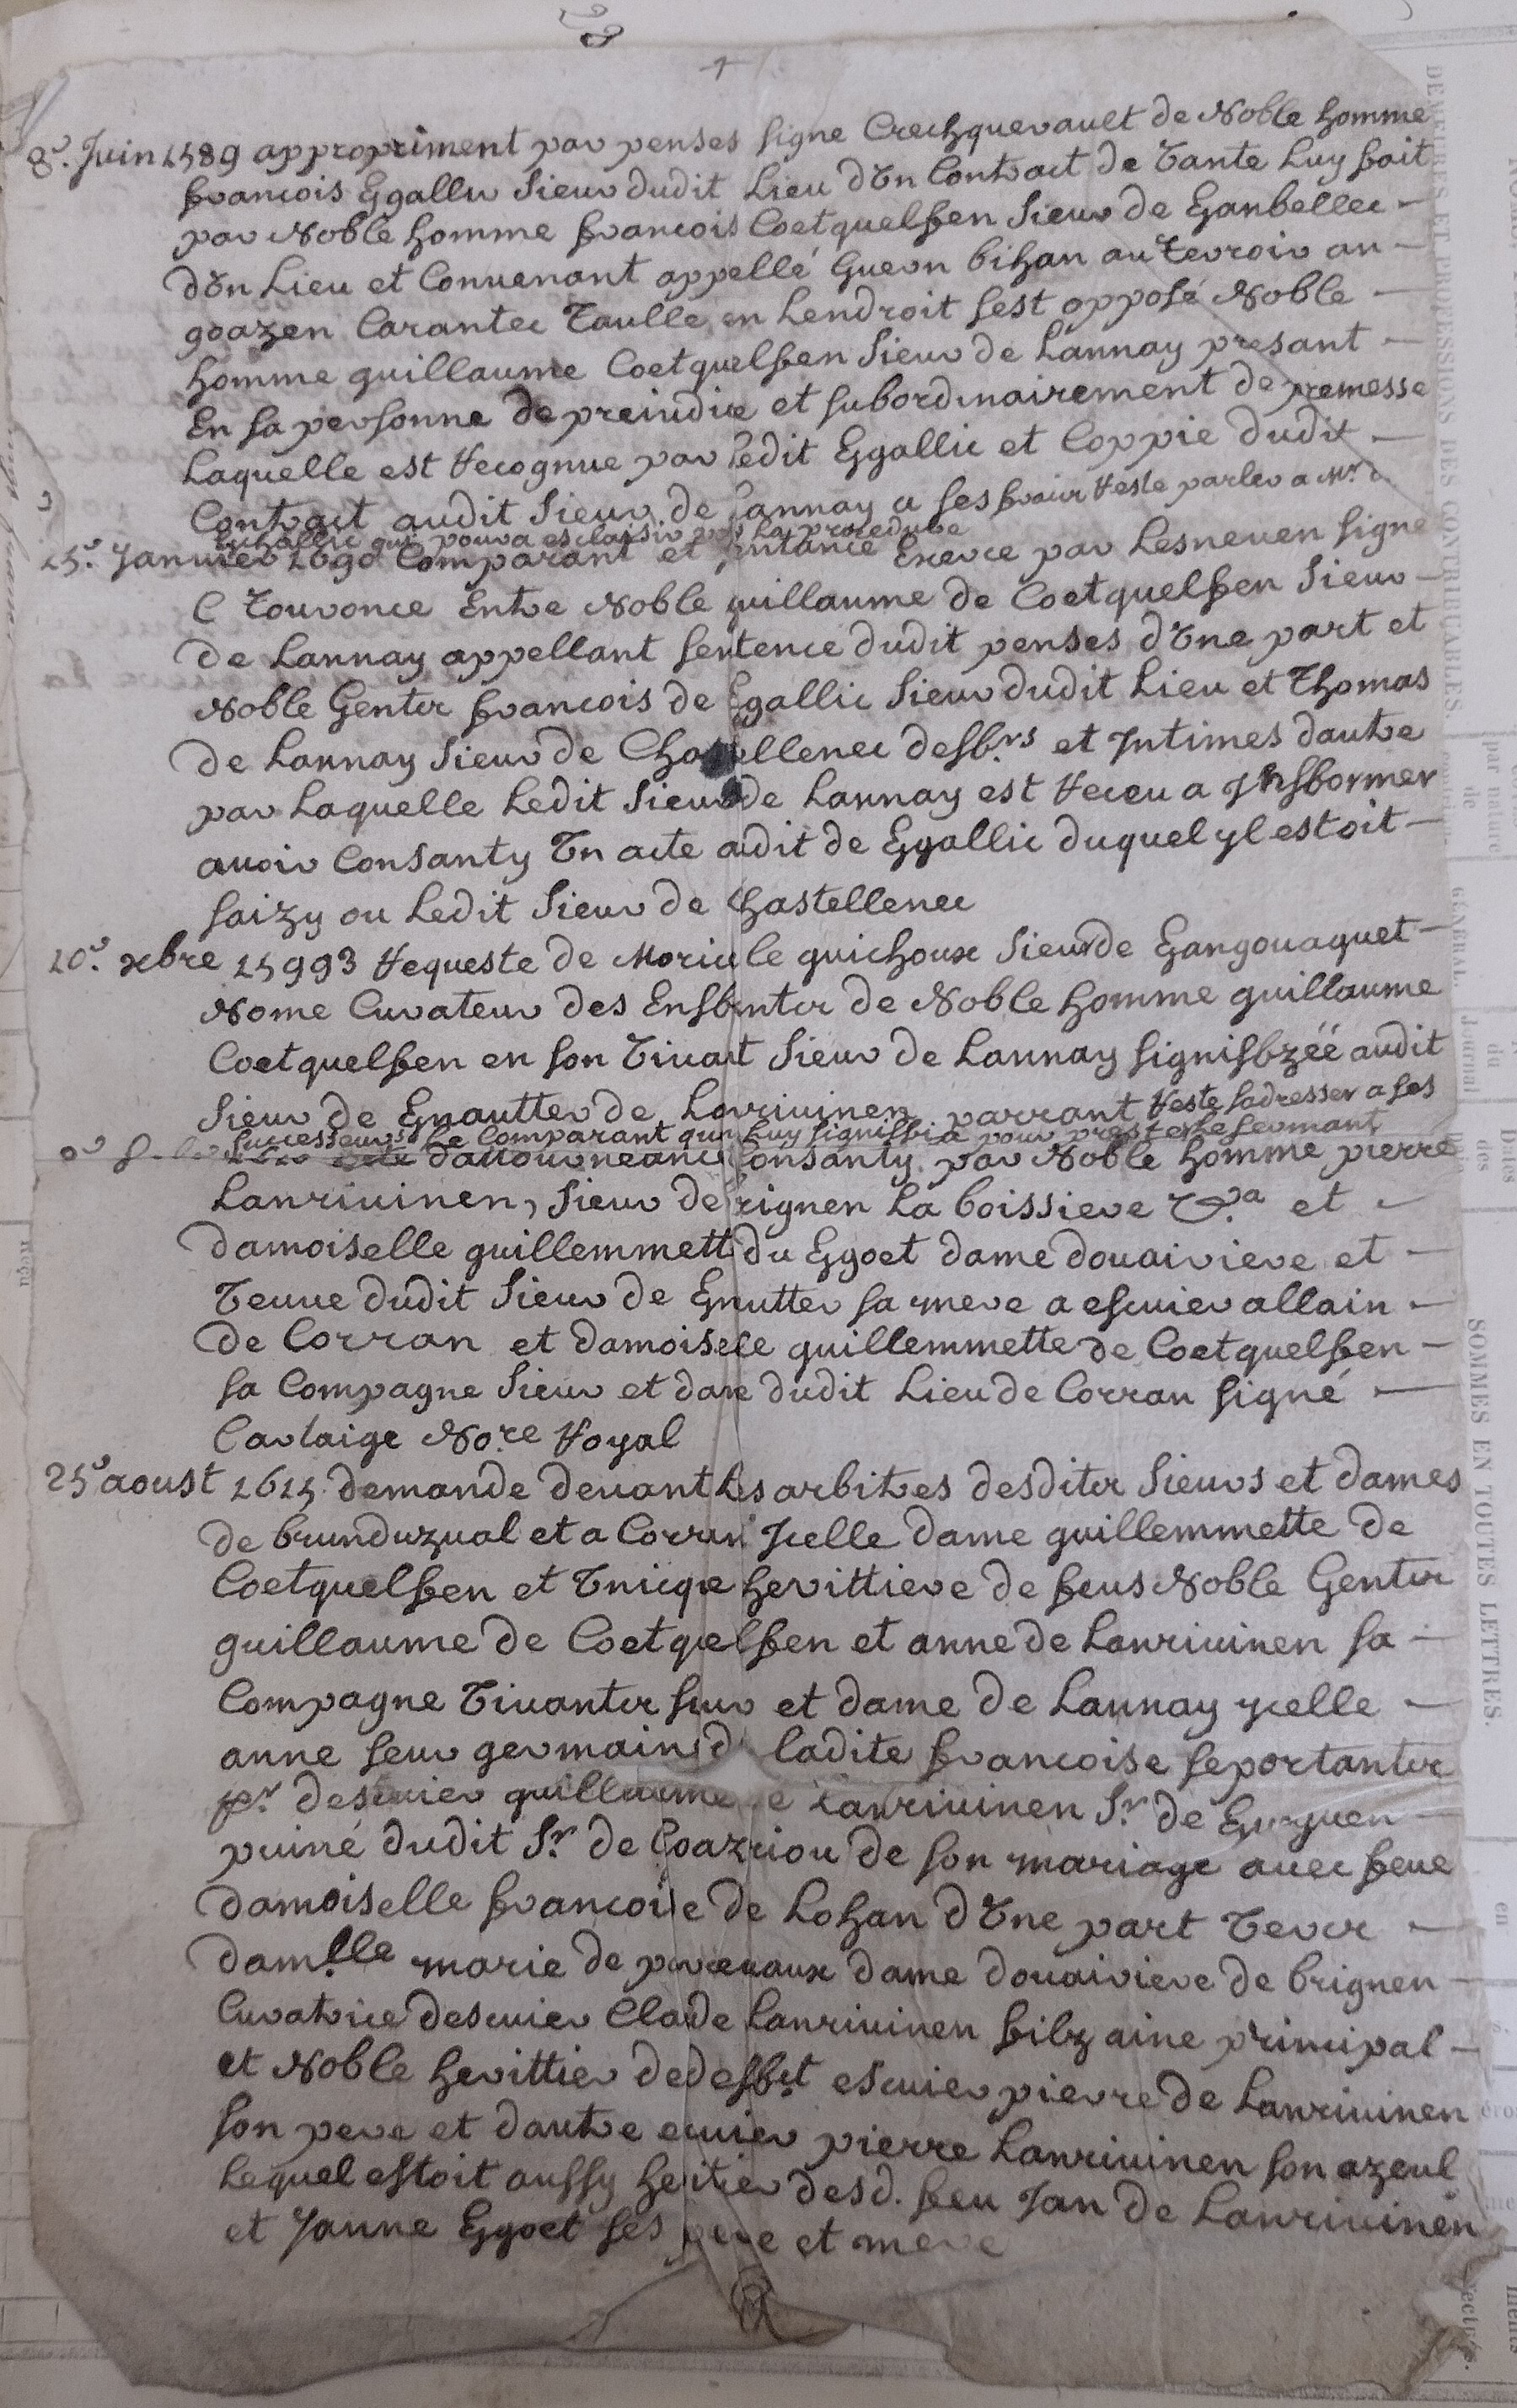 8e. Juin 1589 appropriment par penses signe Crechquerault de Noble homme
francois Kgallic Sieur dudit Lieu d'Un Contract de Vante Luy fait
par Noble homme francois Coetquelfen Sieur de Kanbellec
d'Un Lieu et Conuenant appellé Guern bihan au terroir an
goazen Carantec Taulle en Lendroit sest opposé Noble
homme guillaume Coetquelfen Sieur de Lannay presant
En sa personne de preiudice et subordinairement de premesse
Laquelle est recognue par Ledit Kgallic et Coppie dudit
Contract audit Sieur de Lannay a ses frair reste parler a Mr. d
qui poura esclaisir la procedure
25e. Januier 1690 Comparant et sentance Exerce par Lesneuen signe
C Touronce Entre Noble guillaume de Coetquelfen Sieur
de Lannay appellant sentence dudit penses d'Une part et
Noble Gentz francois de Kgallic Sieur dudit Lieu et Thomas
de Lannay Sieur de Chastellenec deffrs et Intimes dautre
par Laquelle Ledit Sieur de Lannay est receu a Informer
auoir Consanty Un acte audit de Kgallic duquel yl estoit
saizy ou Ledit Sieur de Chastellenec
10e. xbre 15993 requeste de Moricle guichoux Sieur de Kangouaguet
Nome Curateur des Enfentz de Noble homme guillaume
Coetquelfen en son Viuant Sieur de Lannay signiffzéé audit
Sieur de Knautter de Lanriuinen parrant reste sadresser a ses
Successeurs Le Comparant quon Luy signiffia pour prester le sermant
dattourneance Consanty par Noble homme pierre
Lanriuinen, Sieur de brignen La boissiere &a et
damoiselle guillemmette du Kgoet dame douairiere et
Veuue dudit Sieur de Knutter sa mere a escuier allain
de Corran et damoiselle guillemmette de Coetquelfen
sa Compagne Sieur et dame dudit Lieu de Corran signé
Carlaige No.re Royal
25e aoust 1625 demande deuant Les arbitres desditz Sieurs et dames
de brunduzual et a Corran Icelle dame guillemmette de
Coetquelfen et Unicque herittiere de feus Noble Gentz
guillaume de Coetquelfen et anne de Lanriuinen sa
Compagne Viuantz sieur et dame de Lannay ycelle
anne seur germaine de ladite francoise seportantz
pr. descuier guillaume de Lanriuinen Sr. de
puiné dudit Sr. de Coazriou de son mariage auec feue
damoiselle francoise de Lohan d'Une part Vers
dam.lle marie de dame douairiere de brignen
Curatrice descuier Clade Lanriuinen filz aine principal
et Noble herittier de deffet escuier pierre de Lanriuinen
son pere et dautre ecuier pierre Lanriuinen son azeul
Lequel estoit aussy heritier desd. feu Jan de Lanriuinen
et Janne Kgoet ses pere et mere